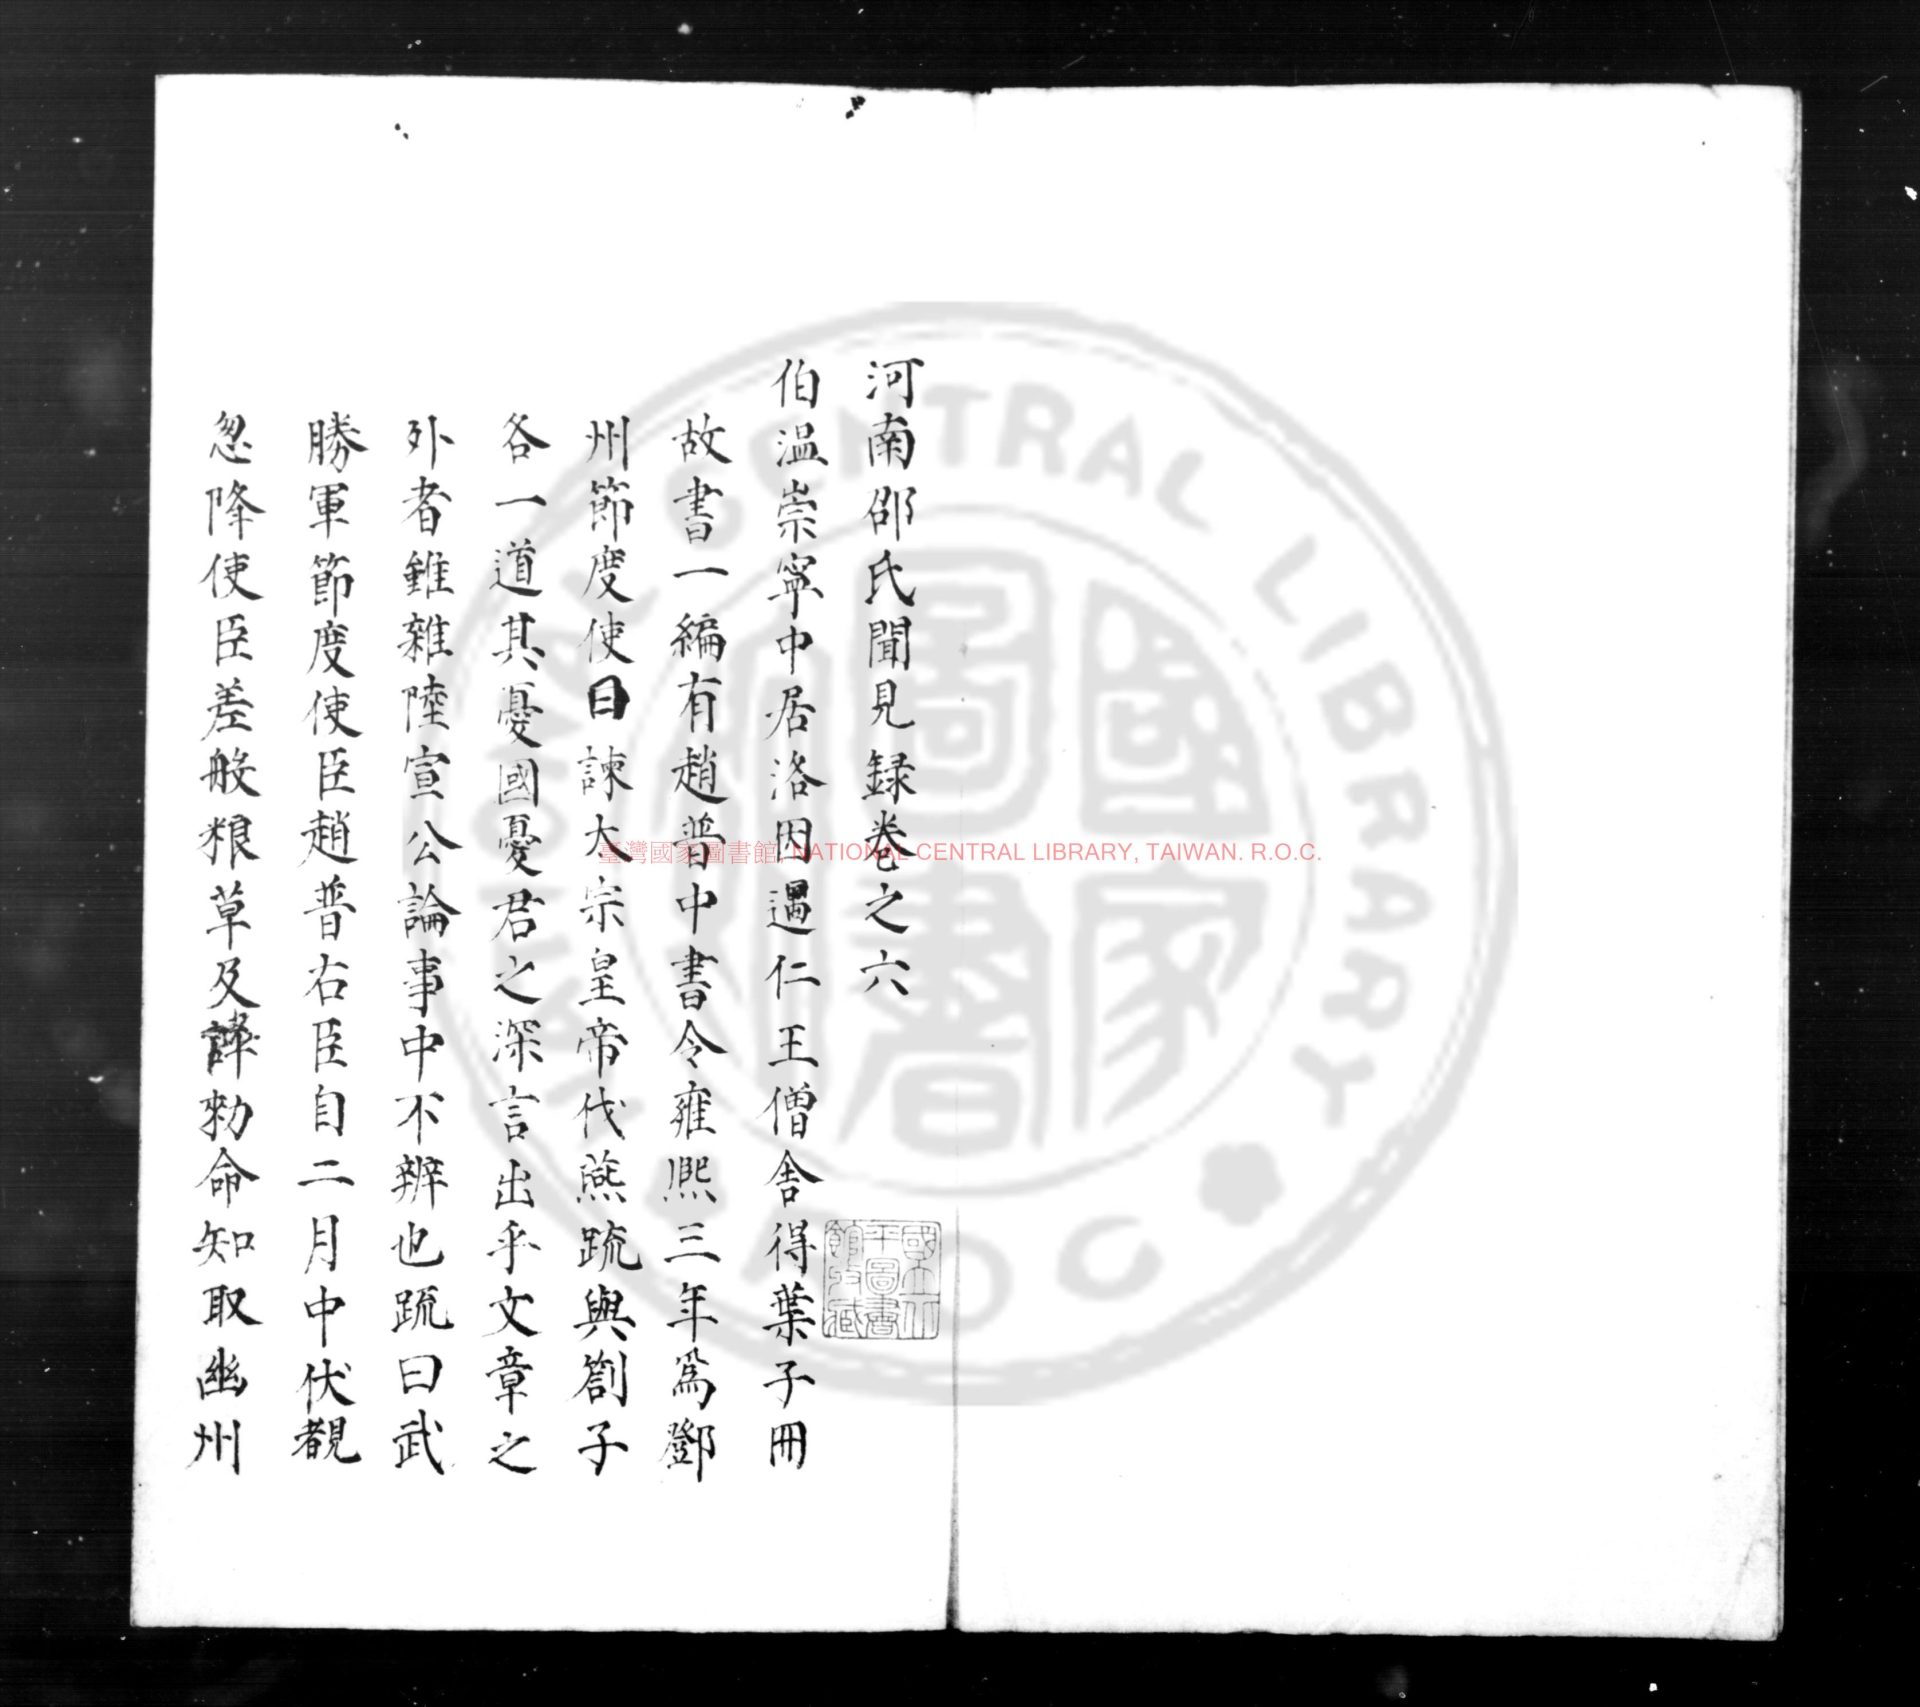 河南邵氏聞見録卷之六
伯温崇寧中居洛因遇仁王僧舍得葉子冊
故書一編有趙普中書令雍熈三年為鄧
州節度使日諫太宗皇帝伐燕䟽與劄子
各一道其憂國憂君之深言出乎文章之
外者雖雜陸宣公論事中不辨也䟽曰武
勝軍節度使臣趙普右臣自二月中伏覩
忽降使臣差般粮草及譁勑命知取幽州
國立北平圖書館收藏
臺灣國家圖書館, NATIONAL CENTRAL LIBRARY, TAIWAN. R.O.C.
NATIONAL CENTRAL LIBRARY
R.O.C
國家圖書